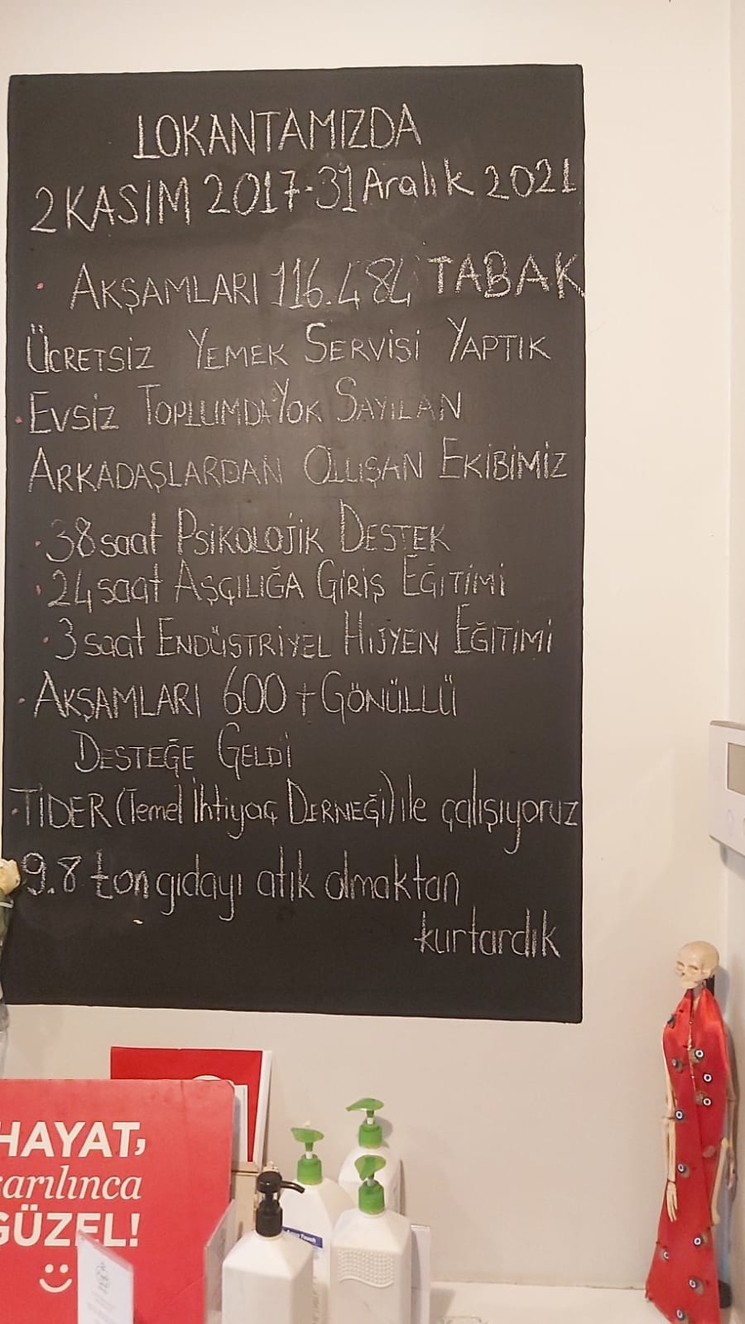 LOKANTAMIZDA
2 KASIM 2017-31 Aralık 2021
· AKŞAMLARI 116.484 TABAK
ÜCRETSİZ YEMEK SERVİSİ YAPTIK
· EVSİZ TOPLUMDA YOK SAYILAN
ARKADAŞLARDAN OLUŞAN EKİBİMİZ
· 38 saat PSİKOLOJİK DESTEK
· 24 saat AŞÇILIĞA GİRİŞ EĞİTİMİ
· 3 saat ENDÜSTRİYEL HİJYEN EĞİTİMİ
· AKŞAMLARI 600+ GÖNÜLLÜ
DESTEĞE GELDİ
· TİDER (Temel İhtiyaç DERNEĞİ) ile çalışıyoruz
9.8 ton gıdayı atık olmaktan
kurtardık
HAYAT,
arılınca
GÜZEL!